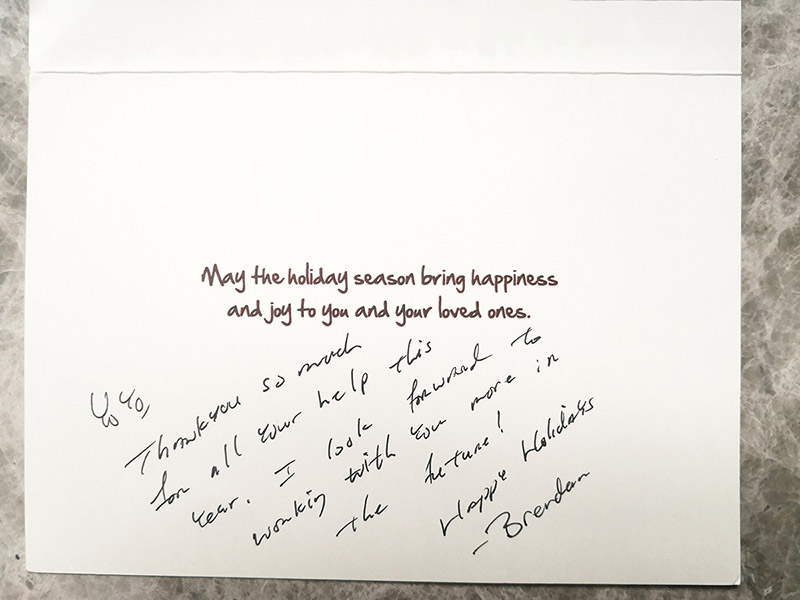 May the holiday season bring happiness
and joy to you and your loved ones.
YoYo,
Thank you so much
for all your help this
year. I look forward to
working with you more in
the future!
Happy Holidays
-Brendan